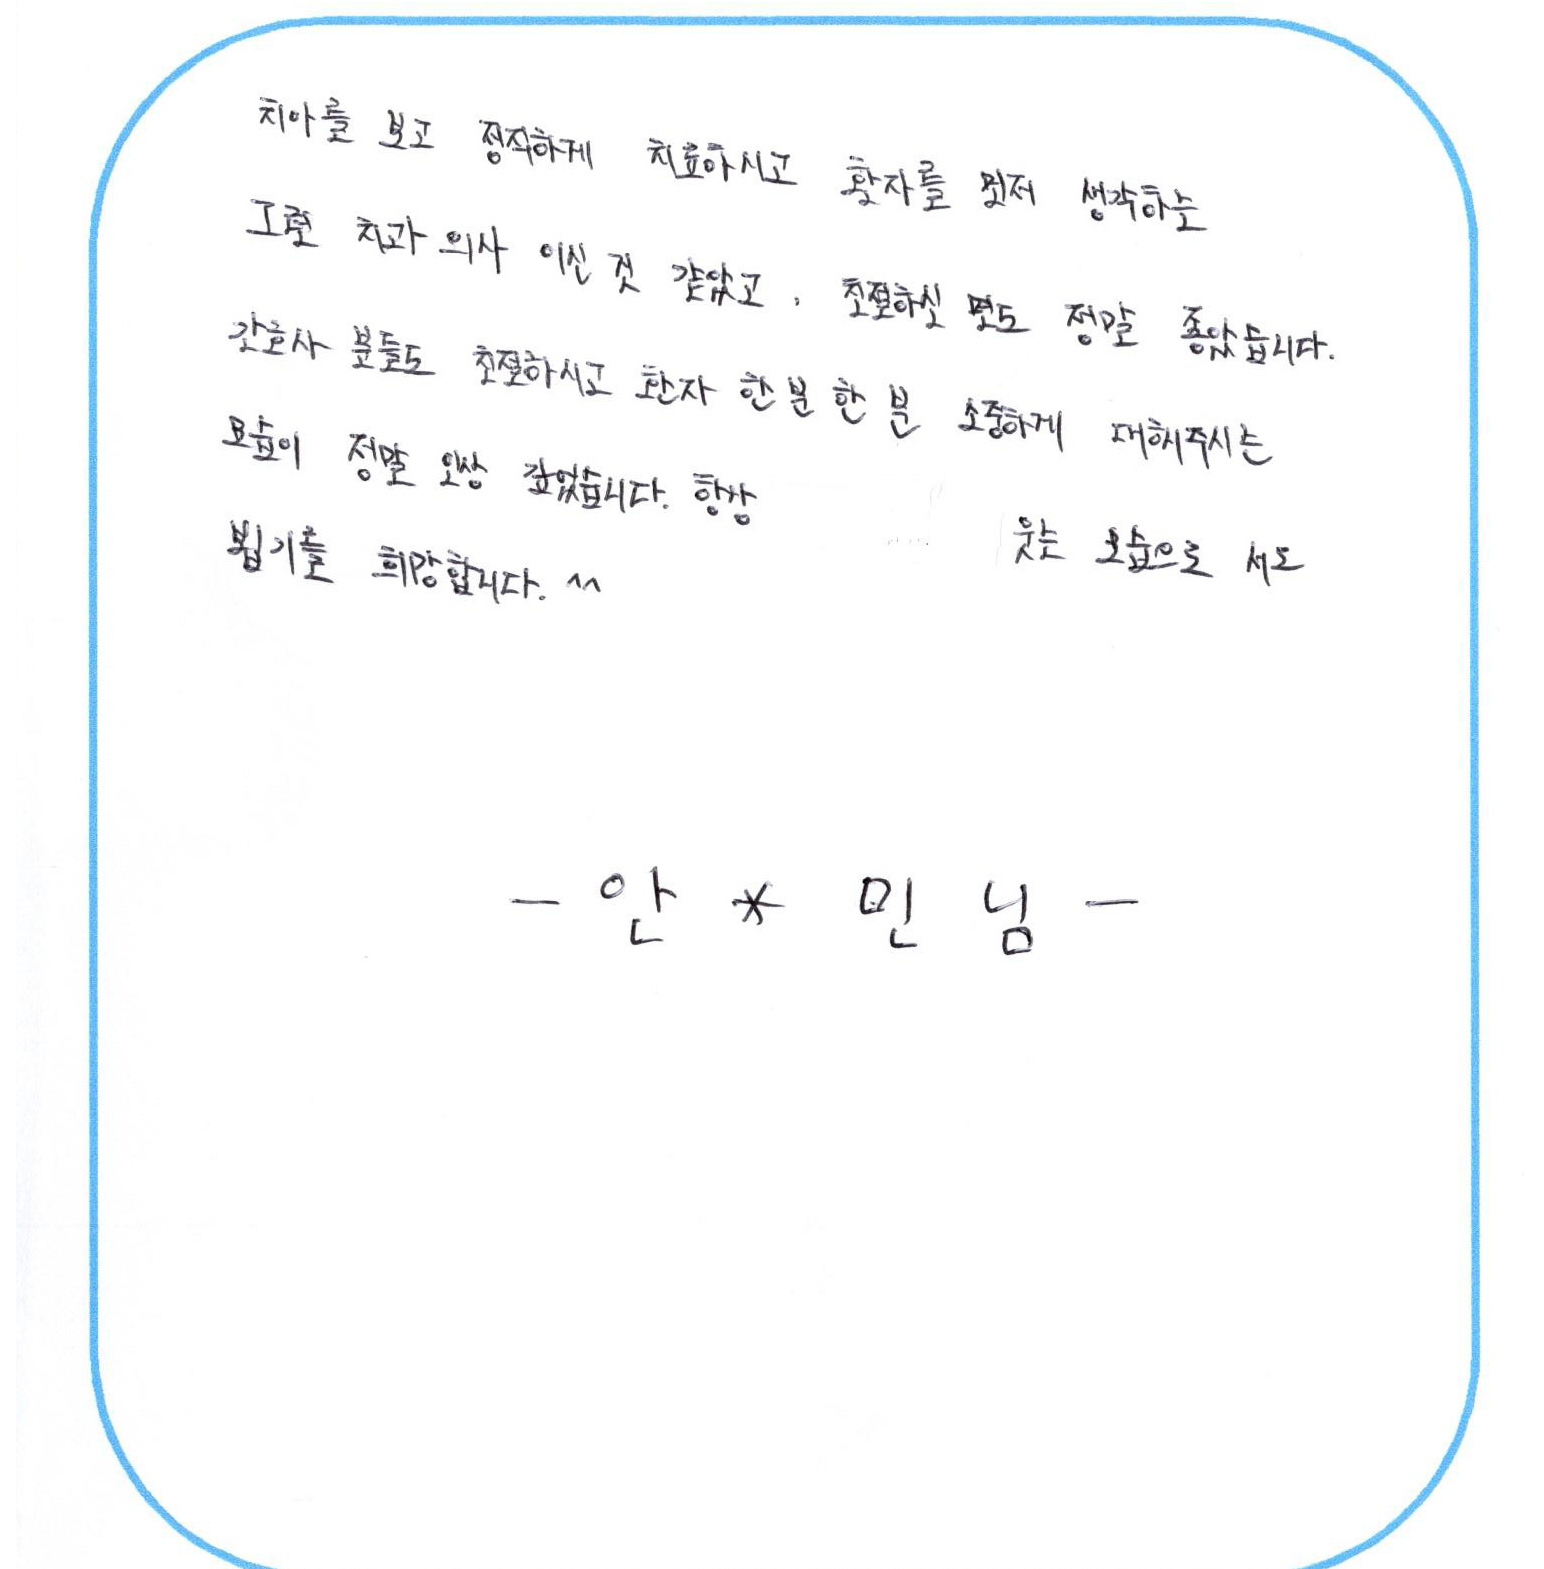 치아를 보고 정직하게 치료하시고 환자를 먼저 생각하는
그런 치과 의사 이신 것 같았고, 친절하신 면도 정말 좋았습니다.
간호사 분들도 친절하시고 환자 한분 한분 소중하게 대해주시는
모습이 정말 인상 깊었습니다. 항상 웃는 모습으로 서로
뵙기를 희망합니다. ^^
- 안 * 민 님 -